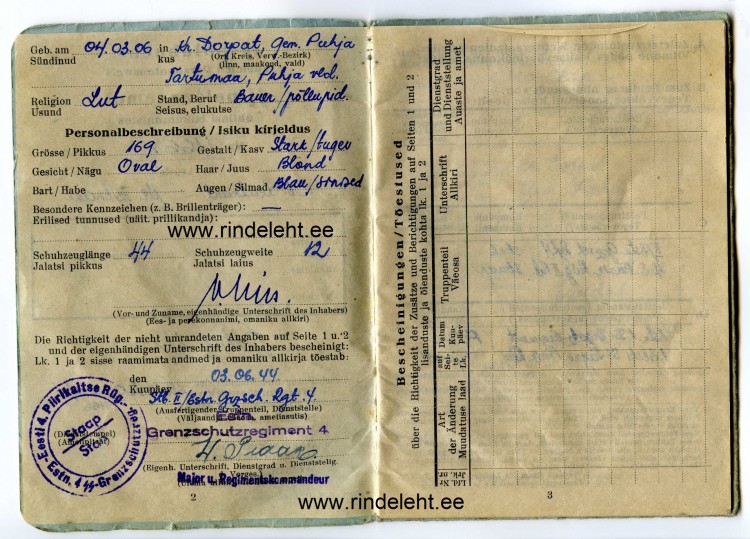 Geb. am 04.03.06 in Kr. Dorpat, gem. Puhja
Sündinud kus (Ort, Kreis, Verw.-Bezirk)
(linn, maakond, vald)
Tartumaa, Puhja vld.
Religion Lut Stand, Beruf Bauer/põllupid.
Usund Seisus, elukutse
Personalbeschreibung / Isiku kirjeldus
Grösse / Pikkus 169 Gestalt / Kasv Stark/tugev
Gesicht / Nägu Oval Haar / Juus Blond
Bart / Habe Augen / Silmad Blau/sinised
Besondere Kennzeichen (z. B. Brillenträger): —
Erilised tunnused (näit. prillikandja):
www.rindeleht.ee
Schuhzeuglänge 44 Schuhzeugweite 12
Jalatsi pikkus Jalatsi laius
(Vor- und Zuname, eigenhändige Unterschrift des Inhabers)
(Ees- ja perekonnanimi, omaniku allkiri)
Die Richtigkeit der nicht umrandeten Angaben auf Seite 1 u. 2
und der eigenhändigen Unterschrift des Inhabers bescheinigt:
Lk. 1 ja 2 sisse raamimata andmed ja omaniku allkirja tõestab:
den 03.06.44
Kuupäev
Stb. II/Estn. Grzsch. Rgt. 4
(Ausfertigender Truppenteil, Dienststelle)
Estn.
Grenzschutzregiment 4
(Eigenh. Unterschrift, Dienstgrad u. Dienststellg.
Major u. Regimentskommandeur
Eesti 4. Piirikaitse Rüg.
Staap
Stab
Estn. 4 SS-Grenzschutzreg.
2
Bescheinigungen / Tõestused
über die Richtigkeit der Zusätze und Berichtigungen auf Seiten 1 und 2
lisanduste ja õienduste kohta lk. 1 ja 2
Lfd. Nr
Jrk. nr.
Art
der Änderung
Muudatuse laad
auf
Sei-
te
Lk.
Datum
Kuu-
päev
Truppenteil
Väeosa
Unterschrift
Allkiri
Dienstgrad
und Dienststellung
Auaste ja amet
3
www.rindeleht.ee